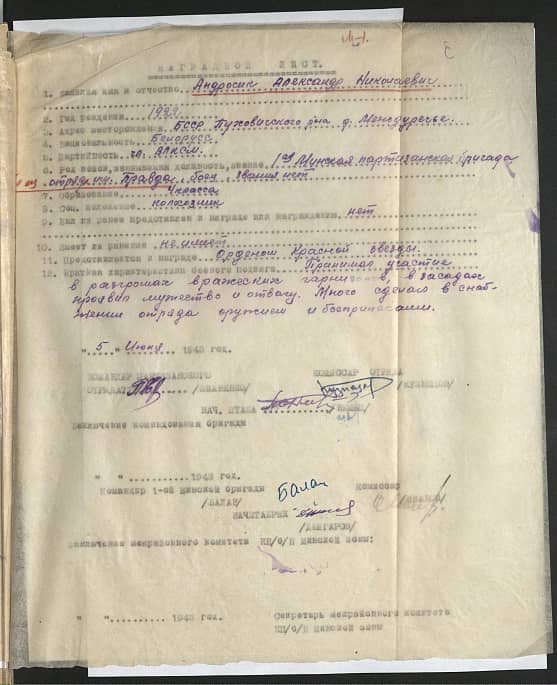 НАГРАДНОЙ ЛИСТ.
1. Фамилия имя и отчество Андросик Александр Николаевич
2. Год рождения 1922
3. Адрес месторождения БССР Пуховичского р-на д. Междуречье.
4. Национальность Белорусс
5. Партийность чл. ВЛКСМ.
6. Род войск, занимаемая должность, звание 1-ая Минская партизанская бригада
отряд им. Правда, боец, звания нет
7. Образование 4 класса
8. Соц. положение колхозник
9. Был ли ранее представлен к награде или награждению нет
10. Имеет ли ранения не имеет
11. Представляется к награде Орденом Красной звезды.
12. Краткая характеристика боевого подвига Принимая участие
в разгромах вражеских гарнизонов, в засадах
проявил мужество и отвагу. Много сделал в снаб-
жении отряда оружием и боеприпасами.
"5" Июня 1943 год.
КОМАНДИР ПАРТИЗАНСКОГО КОМИССАР ОТРЯДА
ОТРЯДА /КУЗНЕЦОВ/
НАЧ. ШТАБА
Заключение командования бригады
" " 1943 год.
Командир 1-ой Минской бригады Балан Комиссар
/БАЛАН/
НАЧШТАБРИГ
Заключение межрайонного комитета КП/б/Б Минской зоны:
" " 1943 год. Секретарь межрайонного комитета
КП/б/Б Минской зоны